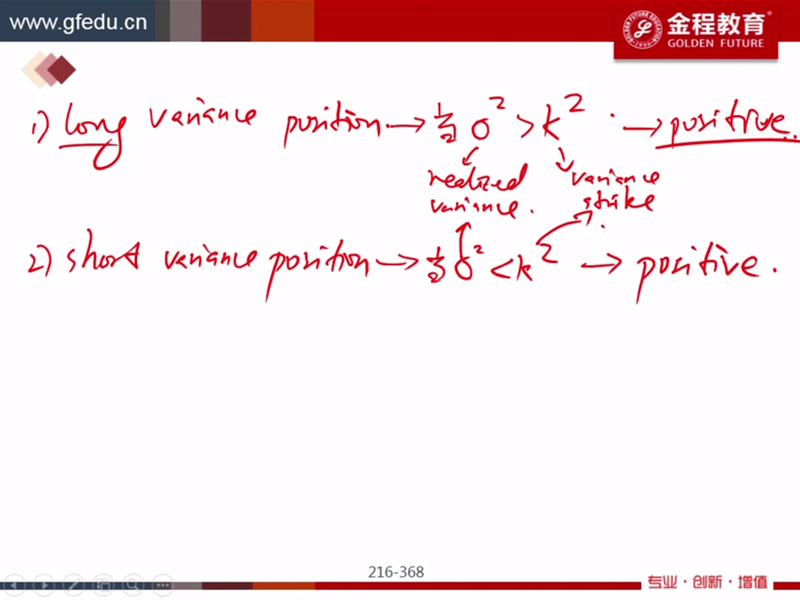 www.gfedu.cn
金程教育®
GOLDEN FUTURE
1) long variance position → 当 σ² > k² · → positive.
realized variance.
variance strike
2) short variance position → 当 σ² < k² → positive.
216-368
专业·创新·增值